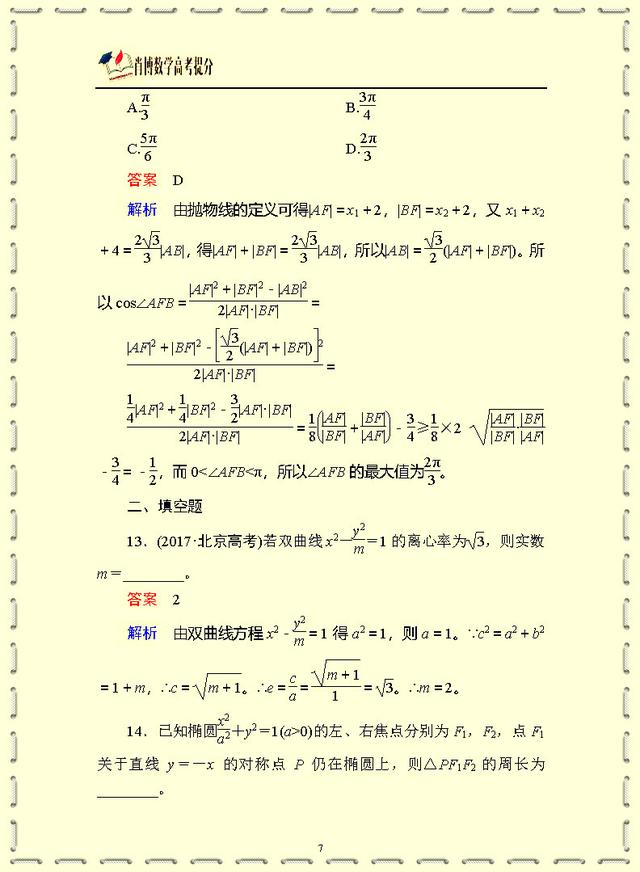 肖博数学高考提分
A.π/3 B.3π/4
C.5π/6 D.2π/3
答案 D
解析 由抛物线的定义可得|AF|=x₁+2，|BF|=x₂+2，又 x₁+x₂
+4=2√3/3|AB|，得|AF|+|BF|=2√3/3|AB|，所以|AB|=√3/2(|AF|+|BF|)。所
以 cos∠AFB=(|AF|²+|BF|²-|AB|²)/(2|AF|·|BF|)=
(|AF|²+|BF|²-[√3/2(|AF|+|BF|)]²)/(2|AF|·|BF|)=
(1/4|AF|²+1/4|BF|²-3/2|AF|·|BF|)/(2|AF|·|BF|)=1/8(|AF|/|BF|+|BF|/|AF|)-3/4≥1/8×2√(|AF|/|BF|·|BF|/|AF|)
-3/4=-1/2，而 0<∠AFB<π，所以∠AFB 的最大值为2π/3。
二、填空题
13．(2017·北京高考)若双曲线 x²-y²/m=1 的离心率为√3，则实数
m=________。
答案 2
解析 由双曲线方程 x²-y²/m=1 得 a²=1，则 a=1。∵c²=a²+b²
=1+m，∴c=√(m+1)。∴e=c/a=√(m+1)/1=√3。∴m=2。
14．已知椭圆x²/a²+y²=1(a>0)的左、右焦点分别为 F₁，F₂，点 F₁
关于直线 y=-x 的对称点 P 仍在椭圆上，则△PF₁F₂ 的周长为
________。
7